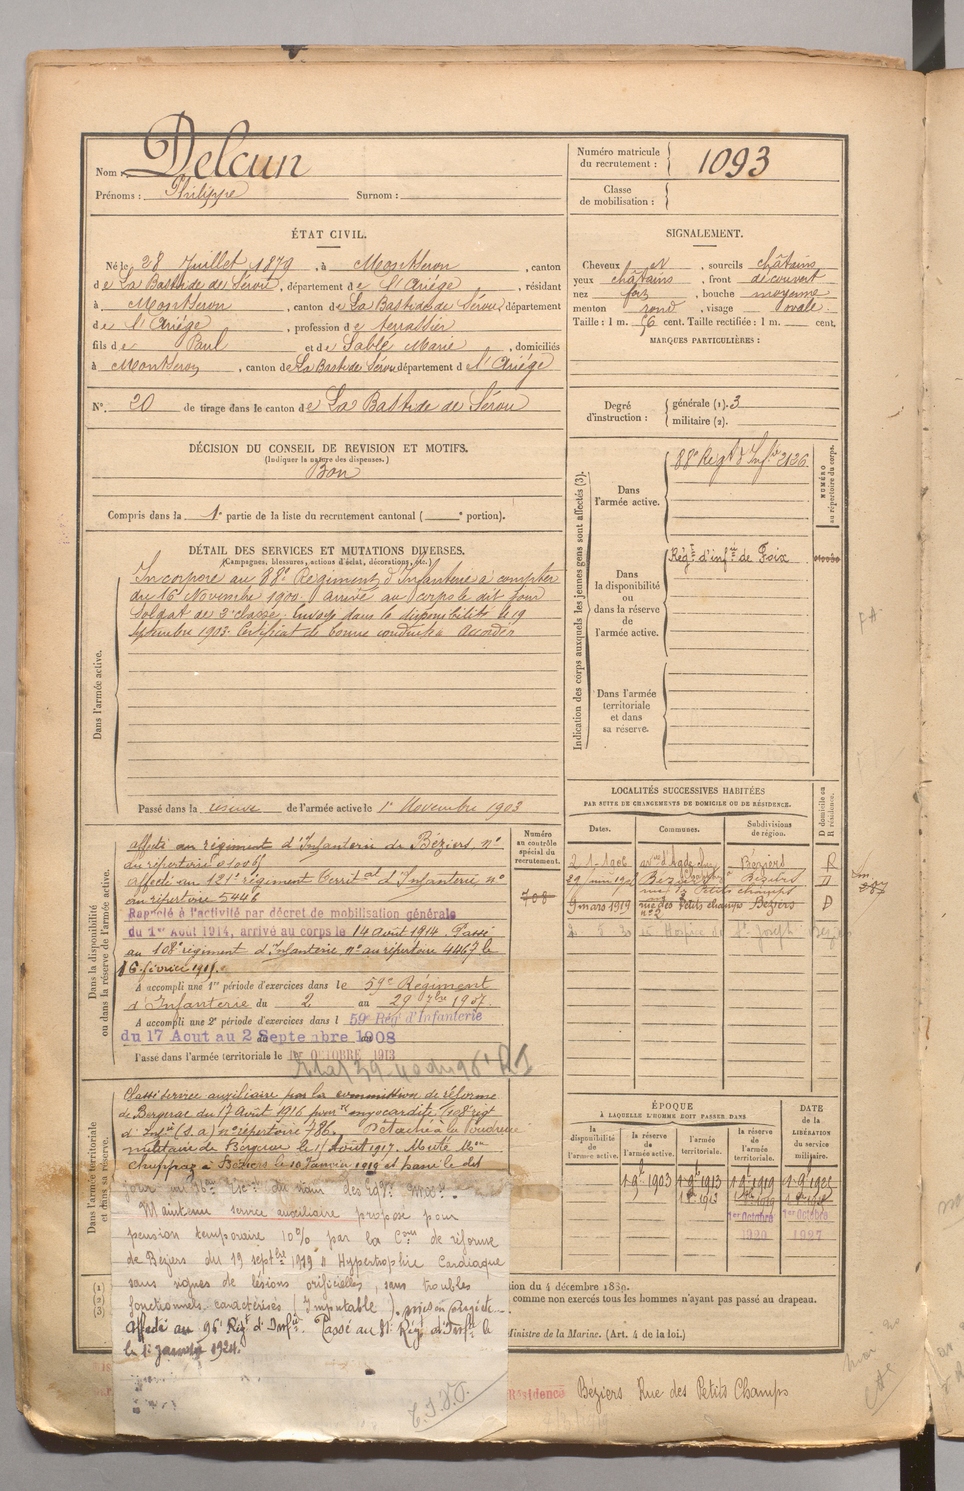 Nom : Delcun
Prénoms : Philippe Surnom :
Numéro matricule du recrutement : 1093
Classe de mobilisation :
ÉTAT CIVIL.
Né le 28 Juillet 1879, à Montseron, canton
de La Bastide de Sérou, département de l'Ariége, résidant
à Montseron, canton de La Bastide de Sérou, département
de l'Ariége, profession de terrassier
fils de Paul et de Sablé Marie, domiciliés
à Montseron, canton de La Bastide Sérou département de l'Ariége
N° 20 de tirage dans le canton de La Bastide de Sérou
SIGNALEMENT.
Cheveux , sourcils châtains
yeux châtains, front découvert
nez fort, bouche moyenne
menton rond, visage ovale.
Taille : 1 m. 56 cent. Taille rectifiée : 1 m. cent.
MARQUES PARTICULIÈRES :
DÉCISION DU CONSEIL DE REVISION ET MOTIFS.
(Indiquer la nature des dispenses.)
Bon
Compris dans la 1e partie de la liste du recrutement cantonal ( e portion).
Degré d'instruction : générale (1). 3
militaire (2).
DÉTAIL DES SERVICES ET MUTATIONS DIVERSES.
(Campagnes, blessures, actions d'éclat, décorations, etc.)
Dans l'armée active.
Incorporé au 88e Régiment d'Infanterie à compter
du 16 Novembre 1900. arrivé au corps le dit jour
soldat de 2e classe. Envoyé dans la disponibilité le 19
septembre 1903. Certificat de bonne conduite Accordé
Passé dans la réserve de l'armée active le 1er Novembre 1903
Indication des corps auxquels les jeunes gens sont affectés (3).
NUMÉRO au répertoire du corps.
Dans l'armée active.
88e Régt d'Infie 2126
Dans la disponibilité ou dans la réserve de l'armée active.
Régt d'infie de Foix
Dans l'armée territoriale et dans sa réserve.
Dans la disponibilité ou dans la réserve de l'armée active.
affecté au régiment d'Infanterie de Béziers n°
du répertoire 01006
affecté au 121e régiment Territal d'Infanterie n°
au répertoire 5446
Rappelé à l'activité par décret de mobilisation générale
du 1er Août 1914, arrivé au corps le 14 août 1914. Passé
au 108e régiment d'Infanterie, n° au répertoire 4467 le
16 février 191
A accompli une 1re période d'exercices dans le 59e Régiment
d'Infanterie du 2 au 29 7bre 1907.
A accompli une 2e période d'exercices dans l 59e Régt d'Infanterie
du 17 Aout au 2 Septembre 1908
Passé dans l'armée territoriale le 1er OCTOBRE 1913
Numéro au contrôle spécial du recrutement.
708
LOCALITÉS SUCCESSIVES HABITÉES
PAR SUITE DE CHANGEMENTS DE DOMICILE OU DE RÉSIDENCE.
Dates. Communes. Subdivisions de région. D domicile ou R résidence.
2-1-1906 d'Agde Béziers R
29 juin 19 Béziers Béziers D
rue des Petits champs
9 mars 1919 rue des Petits champs n°2 Béziers D
Hospice St Joseph
Dans l'armée territoriale et dans sa réserve.
Classé service auxiliaire par la commission de réforme
de Bergerac du 17 Août 1916 pour myocardite. 108e régt
d'Infie (s.a) n° répertoire 786. Détaché à la Poudrerie
militaire de Bergerac le 1 Août 1917.
à Béziers le 10 Janvier 1919 et passé le dit
jour au
Maintenu service auxiliaire proposé pour
pension temporaire 10% par la Con de réforme
de Béziers du 19 septbre 1919 Hypertrophie Cardiaque
sans signes de lésions orificielles, sans troubles
fonctionnels caractérisés (Imputable).
Affecté au 96e Régt d'Infie. Passé au 81e Régt d'Infie le
le 1er janvier 1924.
ÉPOQUE
À LAQUELLE L'HOMME DOIT PASSER DANS
DATE de la LIBÉRATION du service militaire.
la disponibilité de l'armée active. la réserve de l'armée active. l'armée territoriale. la réserve de l'armée territoriale.
1 9bre 1903 1 9bre 1913 1 9bre 1919 1 9bre 1925
1 8bre 1913
1er Octobre 1920 1er Octobre 1927
(1)
(2)
(3)
ion du 4 décembre 1889.
comme non exercés tous les hommes n'ayant pas passé au drapeau.
Ministre de la Marine. (Art. 4 de la loi.)
Résidence Béziers Rue des Petits Champs